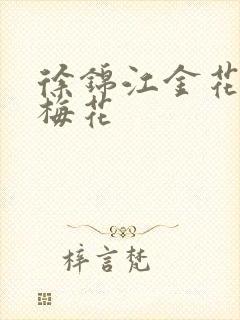 徐锦江金花
梅花
梓言梵